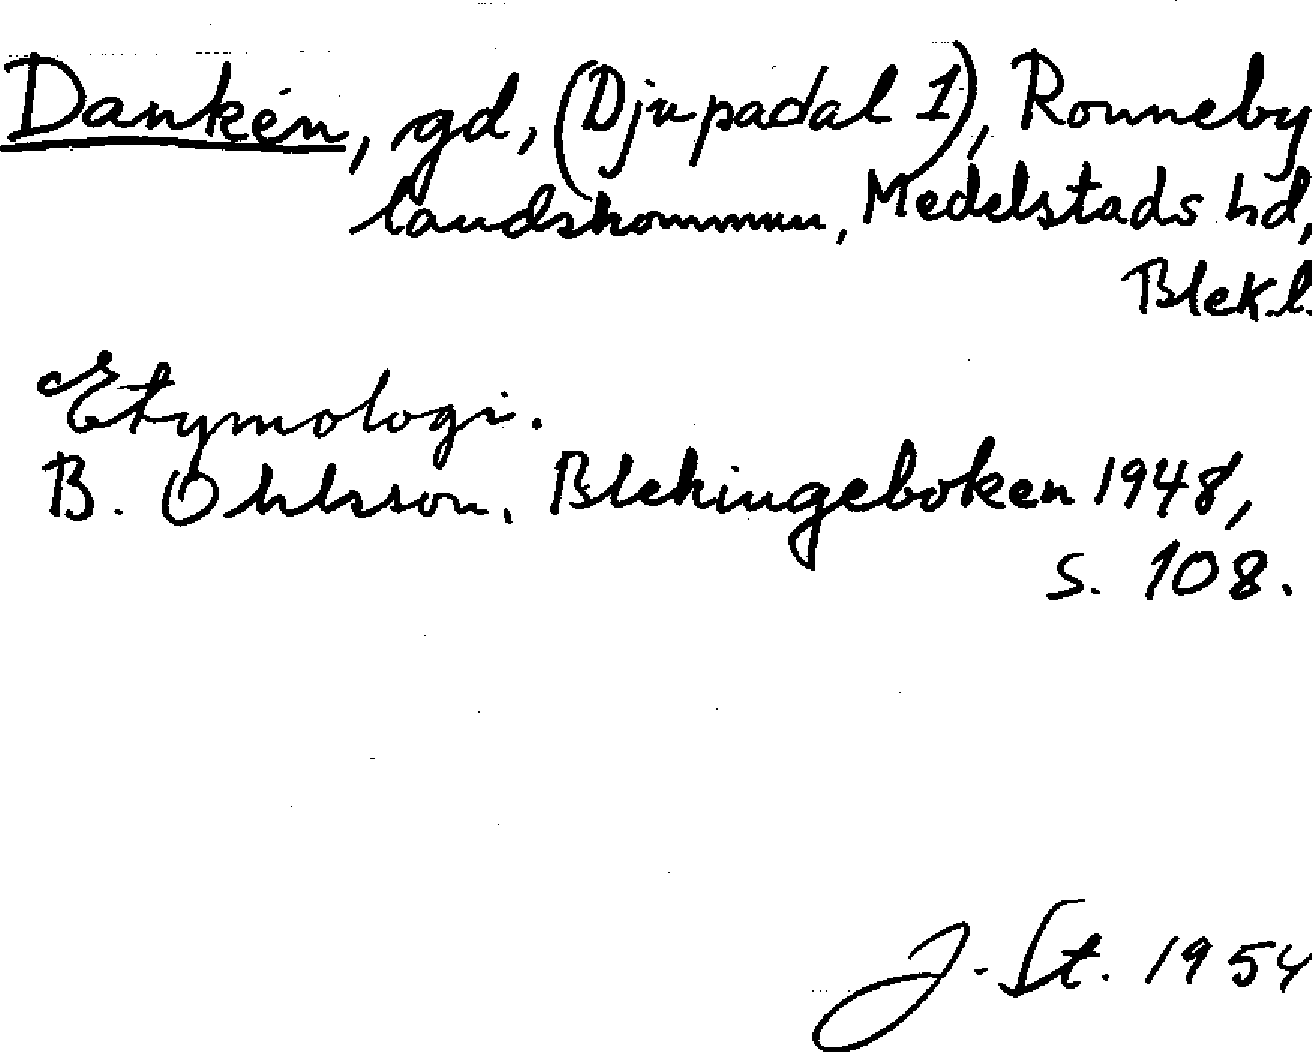 Dankén, gd, (Djupadal 1), Ronneby
landskommun, Medelstads hd,
Blek.l.
Etymologi.
B. Ohlsson, Blekingeboken 1948,
s. 108.
J. St. 1954